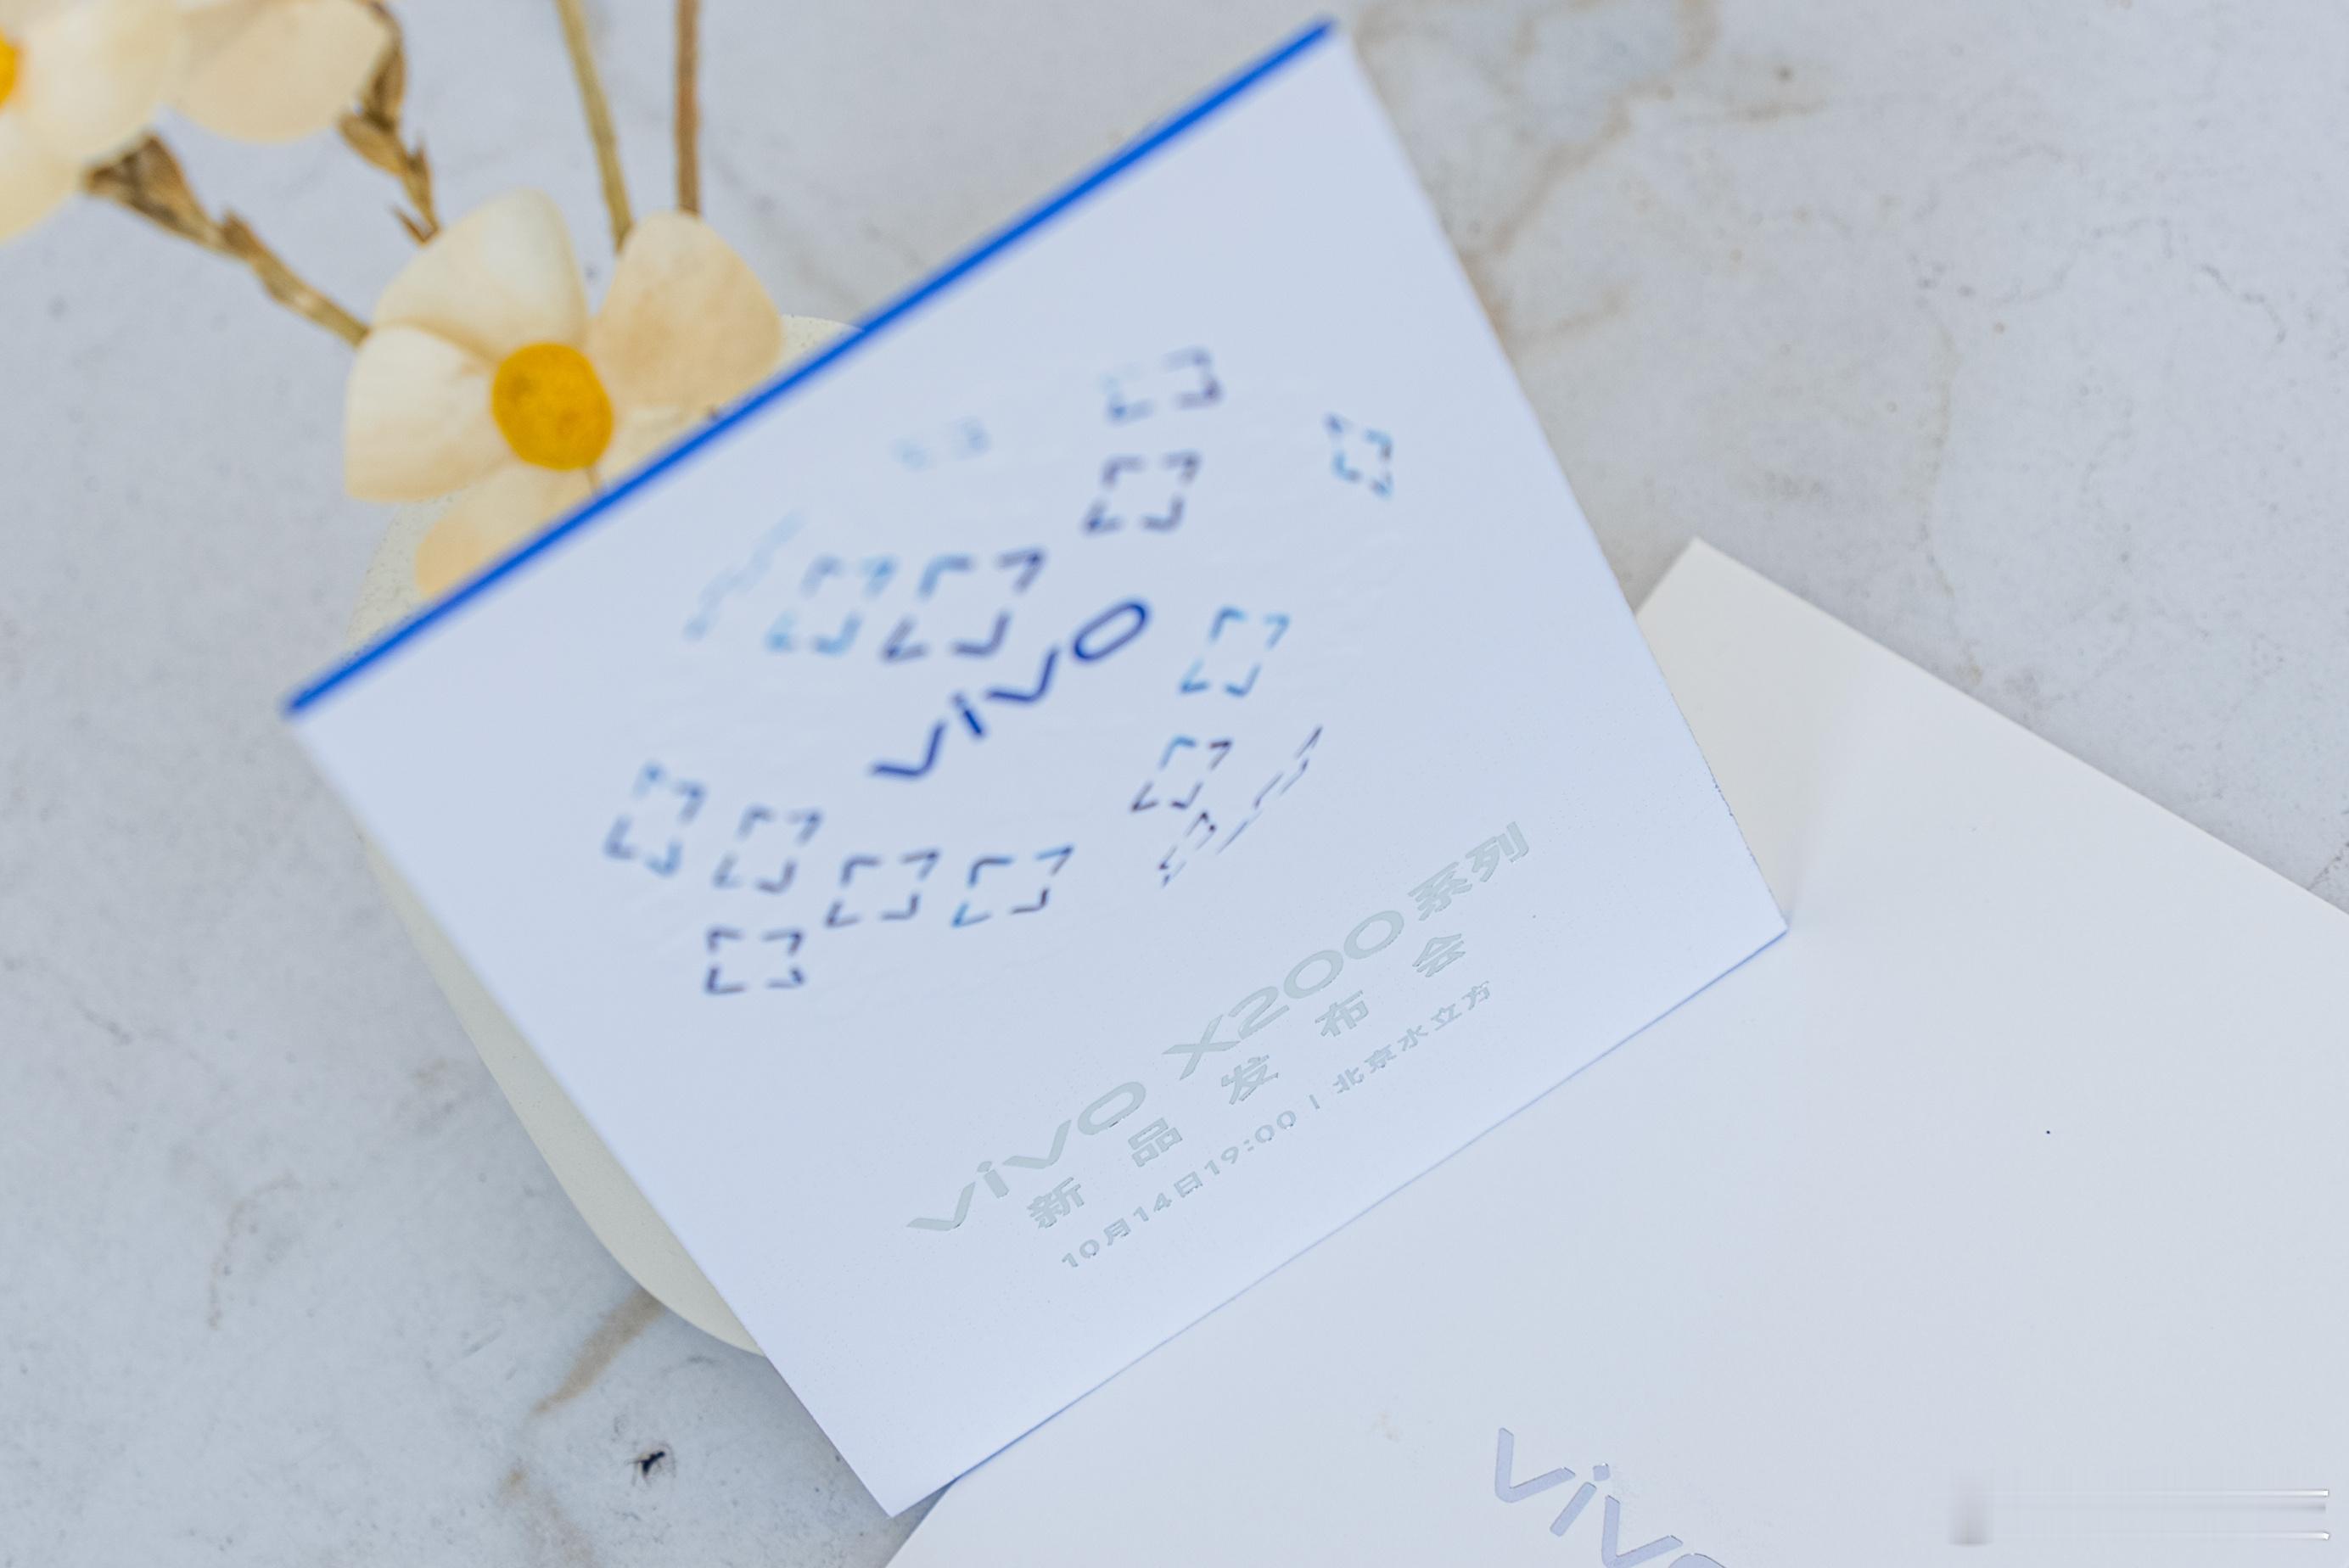 vivo
vivo X200系列
新品发布会
10月14日19:00 | 北京水立方
vivo